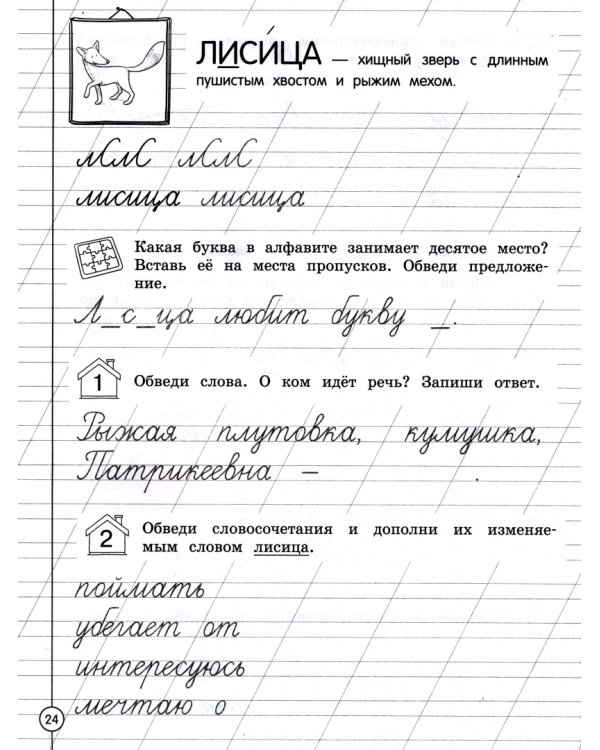 ЛИСИ́ЦА — хищный зверь с длинным
пушистым хвостом и рыжим мехом.
лисица лисица
Какая буква в алфавите занимает десятое место?
Вставь её на места пропусков. Обведи предложе-
ние.
Л_с_ца любит букву _.
1 Обведи слова. О ком идёт речь? Запиши ответ.
Рыжая плутовка, кумушка,
Патрикеевна —
2 Обведи словосочетания и дополни их изменяе-
мым словом лисица.
поймать
убегает от
интересуюсь
мечтаю о
24